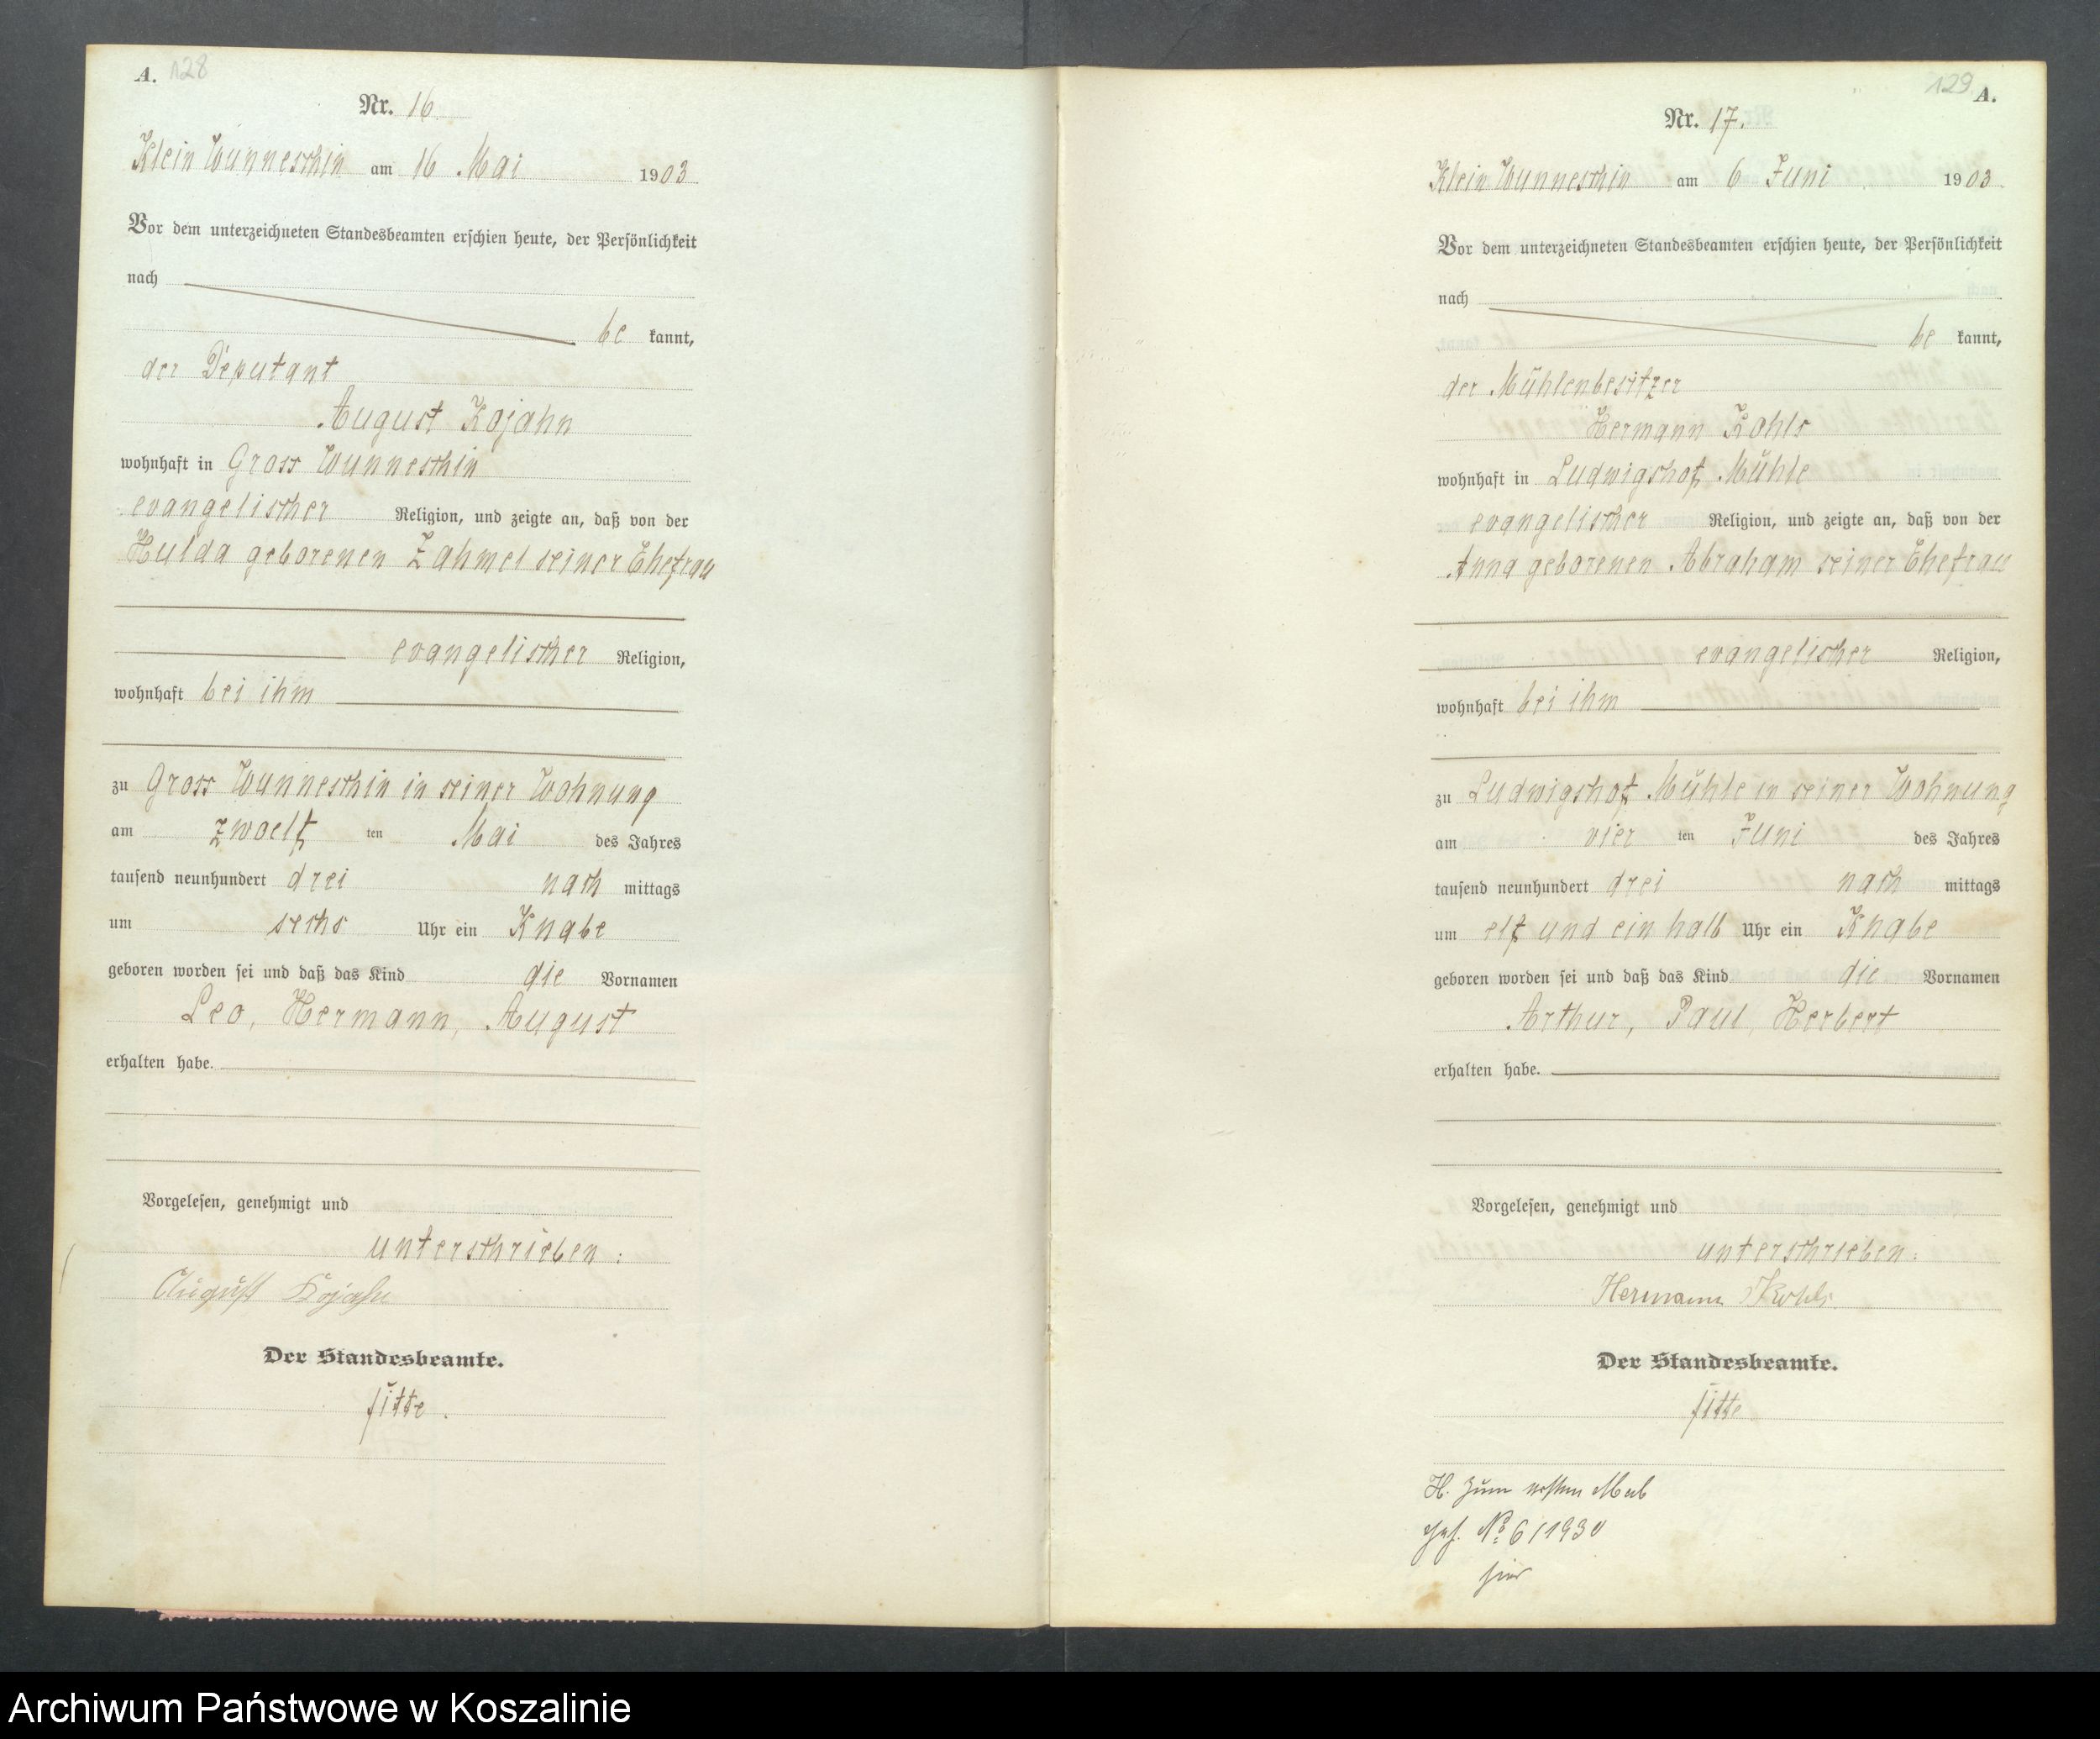 A. 128
Nr. 16.
Klein Wunneschin am 16 Mai 1903
Vor dem unterzeichneten Standesbeamten erschien heute, der Persönlichkeit
nach
be kannt,
der Deputant
August Kojahn
wohnhaft in Gross Wunneschin
evangelischer Religion, und zeigte an, daß von der
Hulda geborenen Zahmel seiner Ehefrau
evangelischer Religion,
wohnhaft bei ihm
zu Gross Wunneschin in seiner Wohnung
am zwoelf ten Mai des Jahres
tausend neunhundert drei nach mittags
um sechs Uhr ein Knabe
geboren worden sei und daß das Kind die Vornamen
Leo, Hermann, August
erhalten habe.
Vorgelesen, genehmigt und
unterschrieben:
August Kojahn
Der Standesbeamte.
129 A.
Nr. 17.
Klein Wunneschin am 6 Juni 1903
Vor dem unterzeichneten Standesbeamten erschien heute, der Persönlichkeit
nach
be kannt,
der Mühlenbesitzer
Hermann Kohls
wohnhaft in Ludwigshof Mühle
evangelischer Religion, und zeigte an, daß von der
Anna geborenen Abraham seiner Ehefrau
evangelischer Religion,
wohnhaft bei ihm
zu Ludwigshof Mühle in seiner Wohnung
am vier ten Juni des Jahres
tausend neunhundert drei nach mittags
um elf und ein halb Uhr ein Knabe
geboren worden sei und daß das Kind die Vornamen
Arthur, Paul, Herbert
erhalten habe.
Vorgelesen, genehmigt und
unterschrieben:
Hermann Kohls.
Der Standesbeamte.
H. zum ersten Mal
geh. No 6/1930
hier
Archiwum Państwowe w Koszalinie